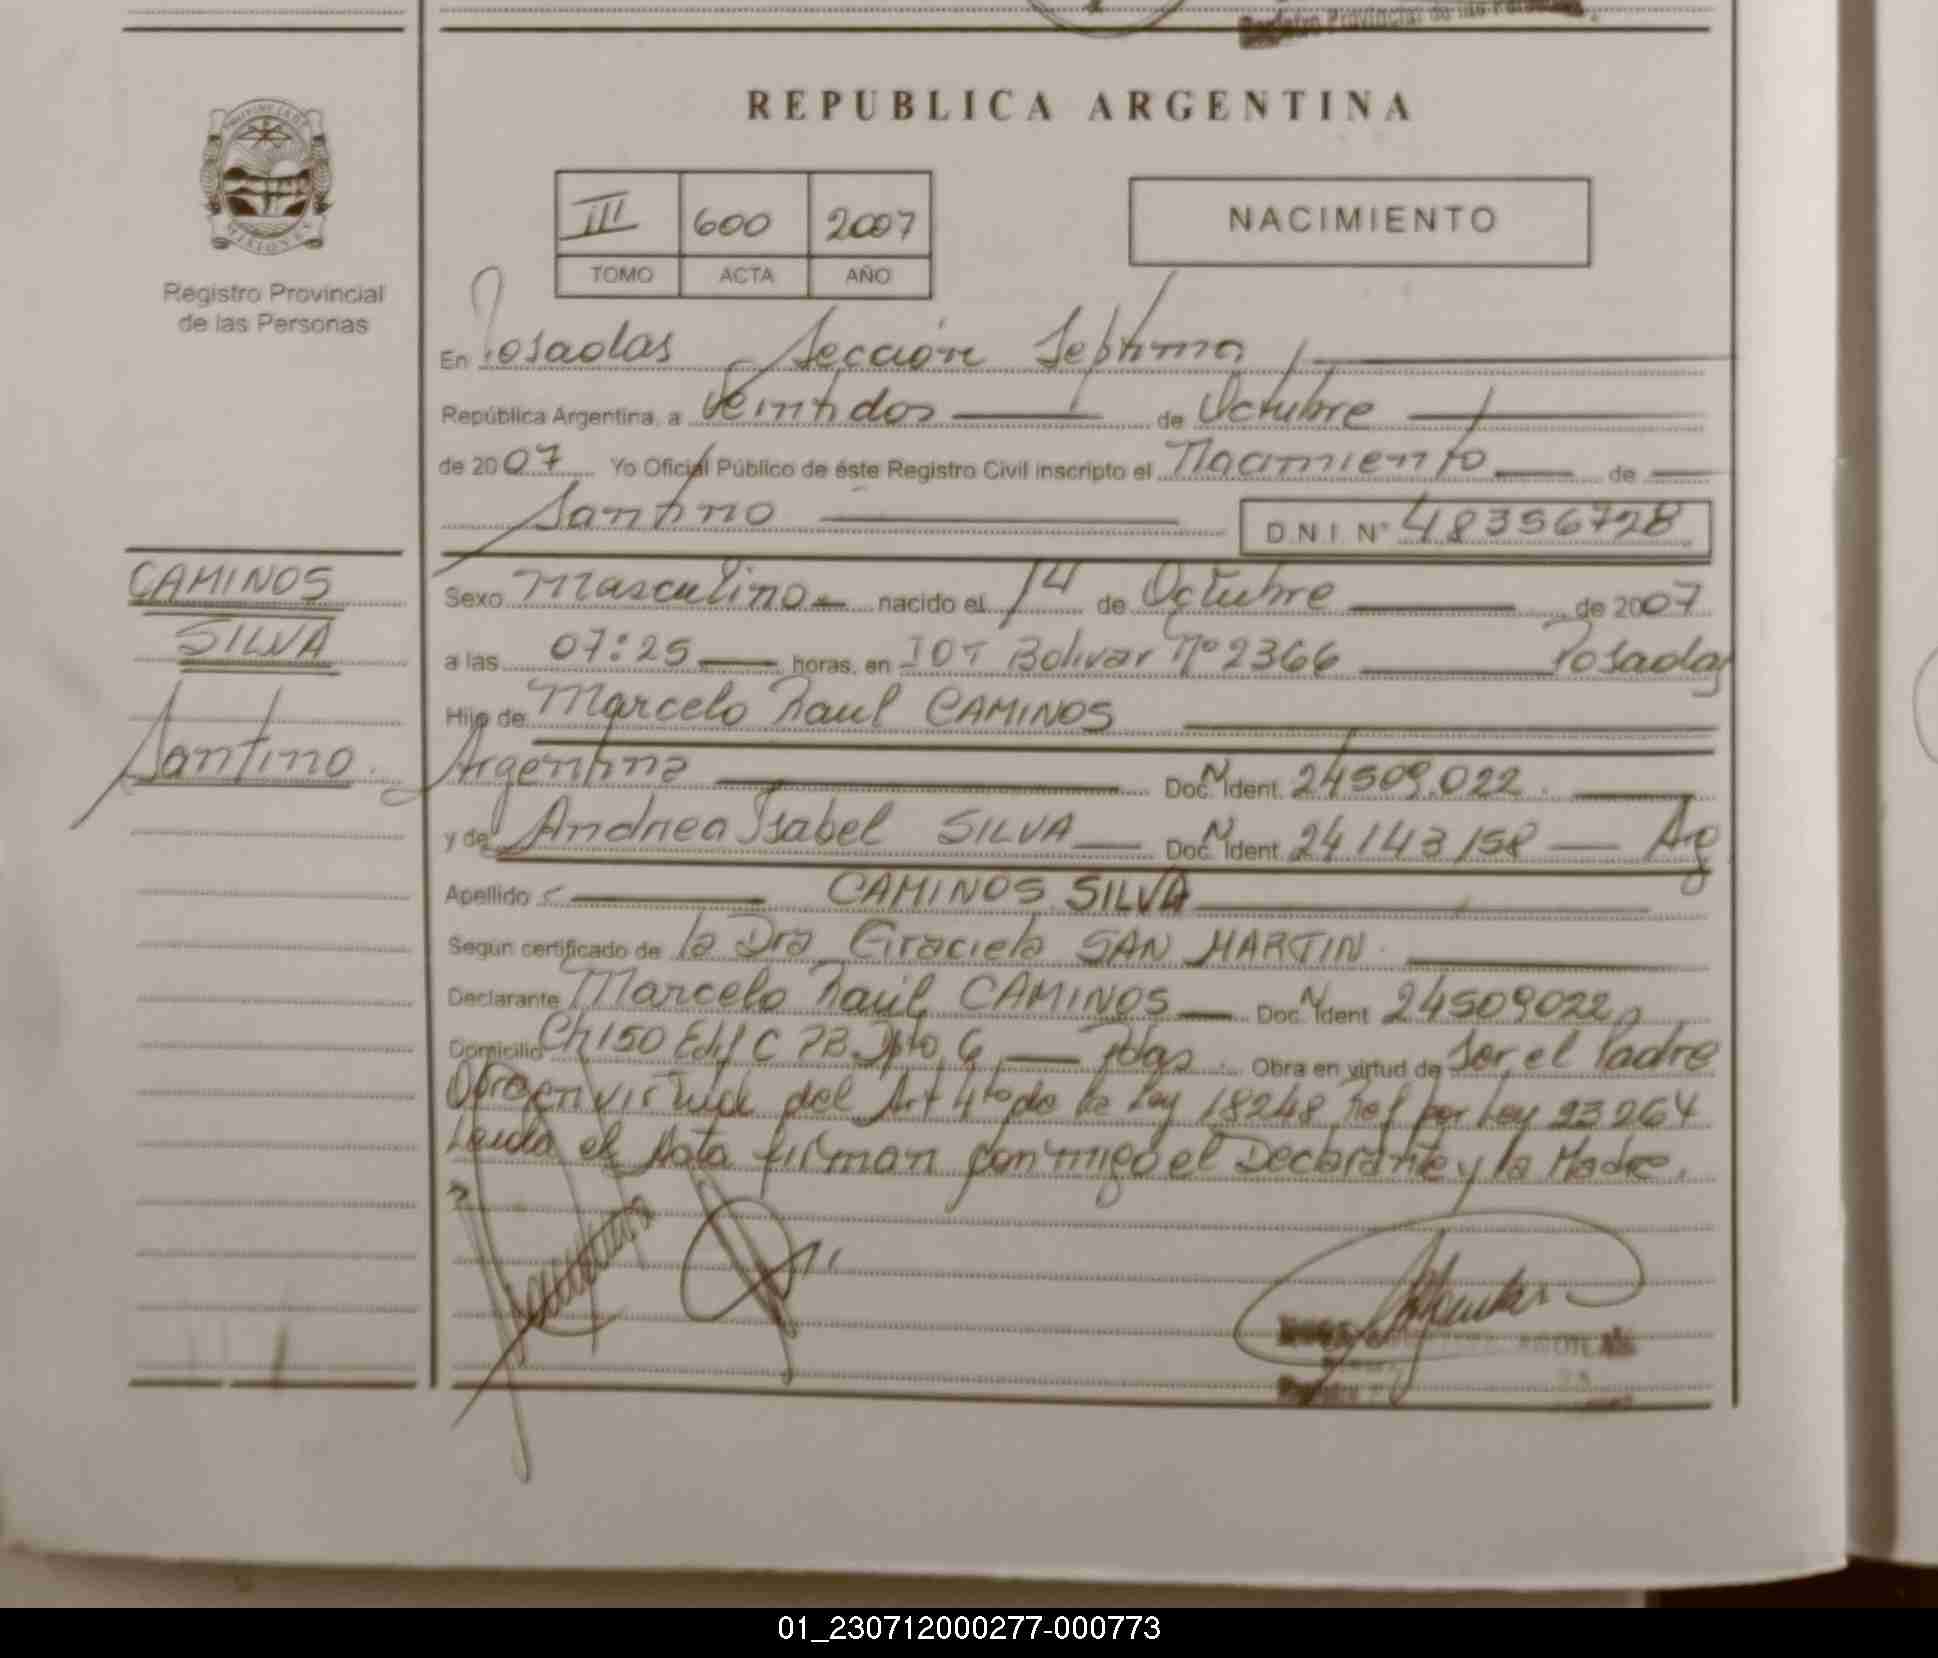 Registro Provincial de las Personas.
PROVINCIA DE
MISIONES
Registro Provincial
de las Personas
REPUBLICA ARGENTINA
III 600 2007
TOMO ACTA AÑO
NACIMIENTO
En Posadas Sección Septima
República Argentina, a Veintidos de Octubre
de 2007 Yo Oficial Público de éste Registro Civil inscripto el Nacimiento de
Santino D.N.I. N° 48356728
CAMINOS
SILVA
Santino
Sexo Masculino nacido el 14 de Octubre de 2007
a las 07:25 horas, en IOT Bolivar Nº 2366 Posadas
Hijo de Marcelo Raul CAMINOS
Argentina Doc. N Ident. 24509.022.
y de Andrea Isabel SILVA Doc. N Ident. 24143158 Arg
Apellido CAMINOS SILVA
Según certificado de la Dra Graciela SAN MARTIN.
Declarante Marcelo Raúl CAMINOS Doc. N Ident 24509022
Domicilio Ch 150 Edif C PB Dpto 6 Pdas Obra en virtud de Ser el Padre
Obra en virtud del Art 4to de la Ley 18248 Ref por Ley 23264
Leida el Acta firman conmigo el Declarante y la Madre.
01_230712000277-000773